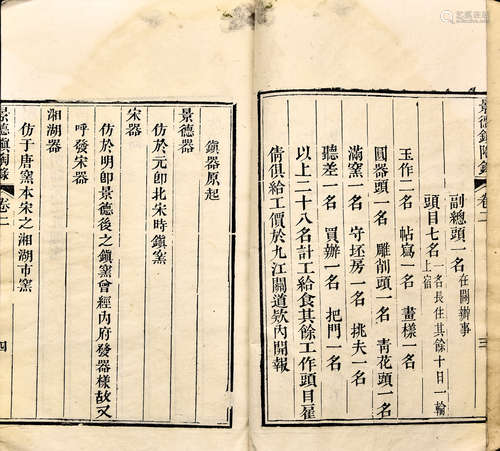 景德鎮陶錄 卷二 三
副總頭一名在關辦事
頭目七名一名長住其餘十日一輪上宿
玉作二名 帖寫一名 畫樣一名
圓器頭一名 雕削頭一名 青花頭一名
滿窯一名 守坯房一名 挑夫一名
聽差一名 買辦一名 把門一名
以上二十八名計工給食其餘工作頭目雇
倩俱給工價於九江關道欵內開報
鎮器原起
景德器
仿於元卽北宋時鎮窯
宋器
仿於明卽景德後之鎮窯曾經內府發器樣故又
呼發宋器
湘湖器
仿于唐窯本宋之湘湖市窯
景德鎮陶錄 卷二 四